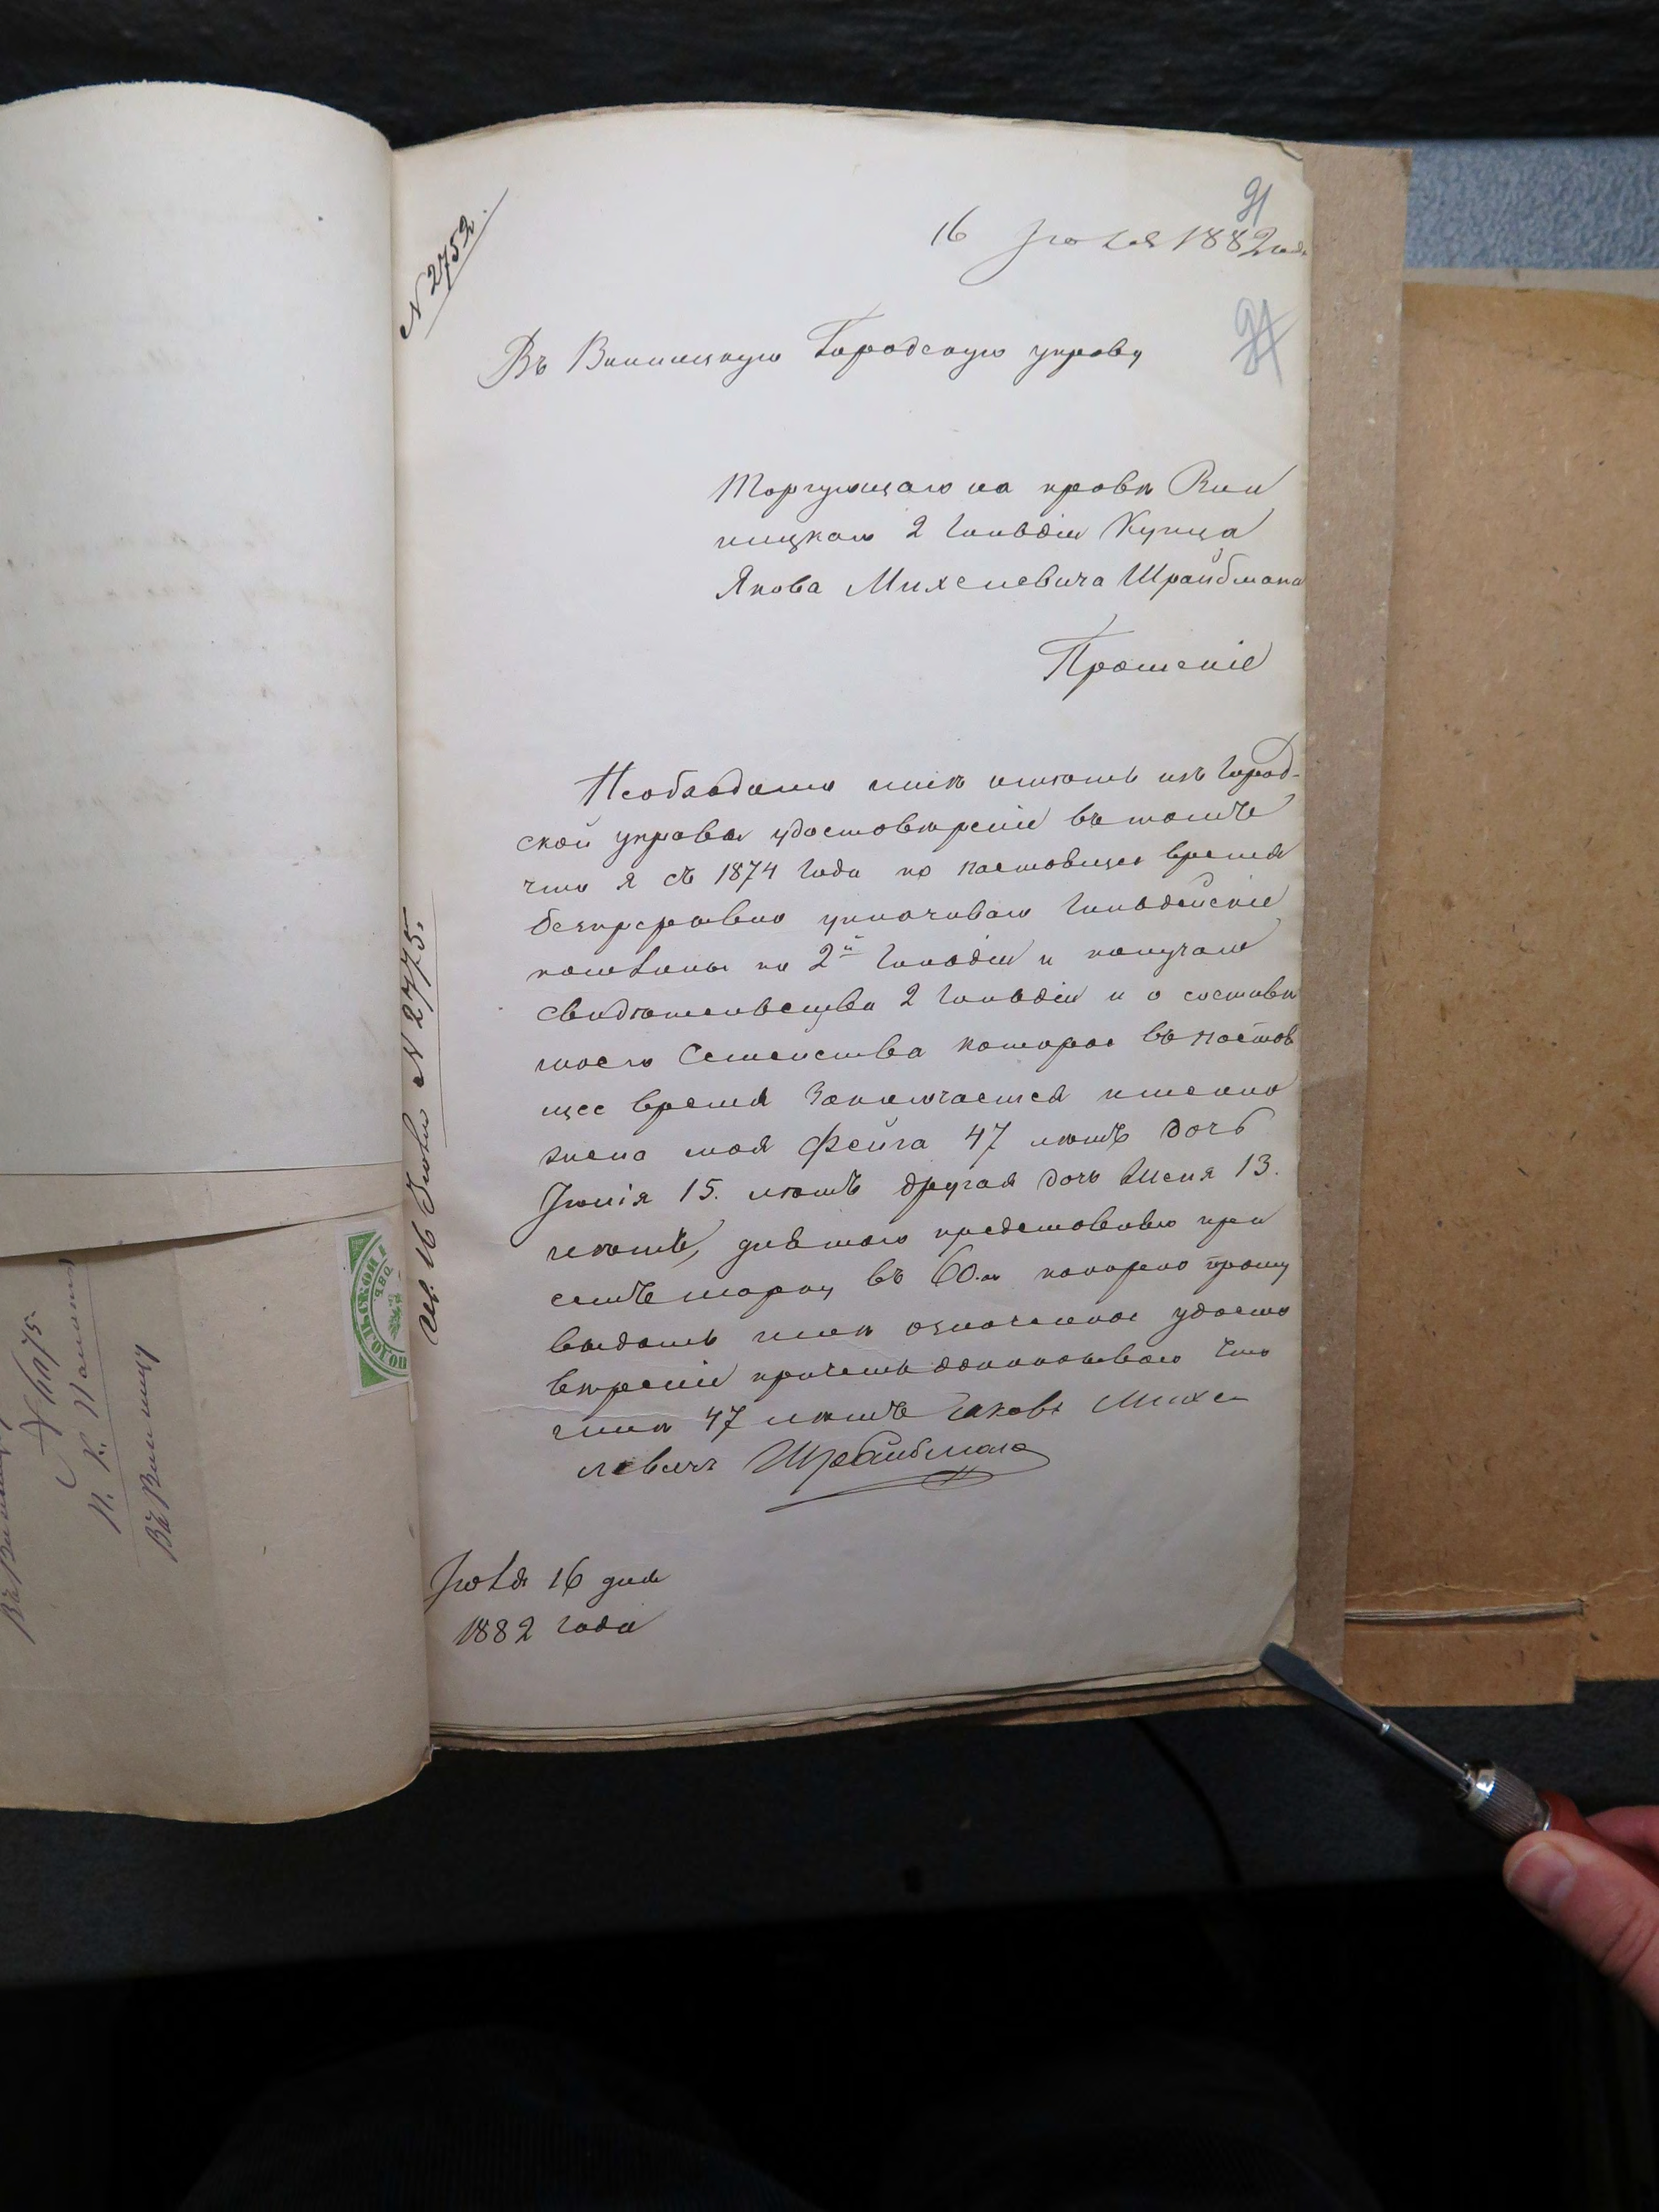 91
16 Іюля 1882 года
N 2752.
91
Въ Винницкую Городскую управу
Торгующаго на правѣ Вин
ницкаго 2 Гильдіи Купца
Якова Михелевича Шрайбмана
Прошеніе
Необходимо мнѣ имѣть изъ Город-
ской управы удостовѣреніе въ томъ
что я съ 1874 Года по настоящее время
безпрерывно уплачиваю Гильдейскіе
пошлины по 2й Гильдіи и получаю
свидѣтельства 2 Гильдіи и о составѣ
моего Семейства которое въ настоя
щее время Заключается именно
жена моя Фейга 47 лѣтъ дочь
Юлія 15. лѣтъ другая дочь Шеня 13.
лѣтъ, для чего представляю при
семъ марку въ 60.к покорно прошу
выдать мнѣ означенное удосто
вѣреніе причемъ докладываю что
мнѣ 47 лѣтъ Іаковъ Михе
левичъ Шрайбманъ
Іюля 16 дня
1882 года
Ис. 16 Іюля N 2775.
ОЛЬСКОЙ
Въ Винницу